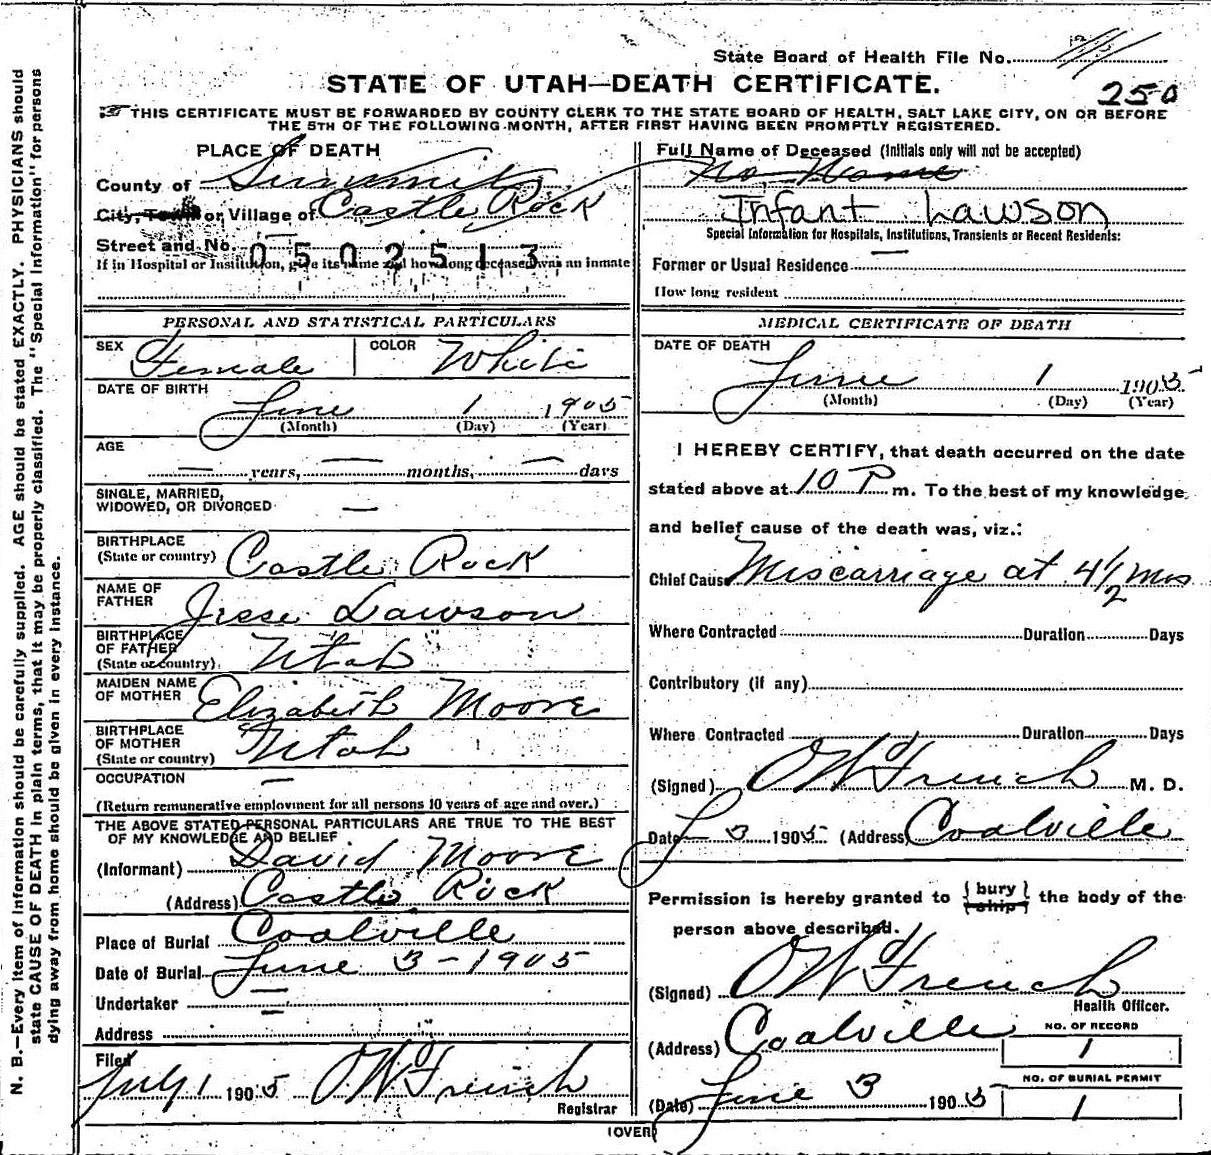 State Board of Health File No.
STATE OF UTAH—DEATH CERTIFICATE.
250
THIS CERTIFICATE MUST BE FORWARDED BY COUNTY CLERK TO THE STATE BOARD OF HEALTH, SALT LAKE CITY, ON OR BEFORE
THE 5TH OF THE FOLLOWING MONTH, AFTER FIRST HAVING BEEN PROMPTLY REGISTERED.
PLACE OF DEATH
County of Summit
City, Town or Village of Castle Rock
Street and No. —
0502513
If in Hospital or Institution, give its name and how long deceased was an inmate
PERSONAL AND STATISTICAL PARTICULARS
SEX Female COLOR White
DATE OF BIRTH
June 1 1905
(Month) (Day) (Year)
AGE
— years, — months, — days
SINGLE, MARRIED,
WIDOWED, OR DIVORCED —
BIRTHPLACE
(State or country) Castle Rock
NAME OF
FATHER Jesse Lawson
BIRTHPLACE
OF FATHER
(State or country) Utah
MAIDEN NAME
OF MOTHER Elizabeth Moore
BIRTHPLACE
OF MOTHER
(State or country) Utah
OCCUPATION —
(Return remunerative employment for all persons 10 years of age and over.)
THE ABOVE STATED PERSONAL PARTICULARS ARE TRUE TO THE BEST
OF MY KNOWLEDGE AND BELIEF
(Informant) David Moore
(Address) Castle Rock
Place of Burial Coalville
Date of Burial June 3 - 1905
Undertaker —
Address
Filed
July 1 1905 O W French
Registrar
Full Name of Deceased (Initials only will not be accepted)
No Name
Infant Lawson
Special Information for Hospitals, Institutions, Transients or Recent Residents:
Former or Usual Residence —
How long resident
MEDICAL CERTIFICATE OF DEATH
DATE OF DEATH
June 1 1905
(Month) (Day) (Year)
I HEREBY CERTIFY, that death occurred on the date
stated above at 10 P m. To the best of my knowledge
and belief cause of the death was, viz.:
Chief Cause Miscarriage at 4½ mos
Where Contracted Duration Days
Contributory (if any)
Where Contracted Duration Days
(Signed) O W French M. D.
Date J 3 1905 (Address) Coalville
Permission is hereby granted to { bury
ship } the body of the
person above described.
(Signed) O W French
Health Officer.
(Address) Coalville
NO. OF RECORD
1
NO. OF BURIAL PERMIT
1
(Date) June 3 1905
(OVER)
N. B.—Every item of information should be carefully supplied. AGE should be stated EXACTLY. PHYSICIANS should
state CAUSE OF DEATH in plain terms, that it may be properly classified. The "Special Information" for persons
dying away from home should be given in every instance.